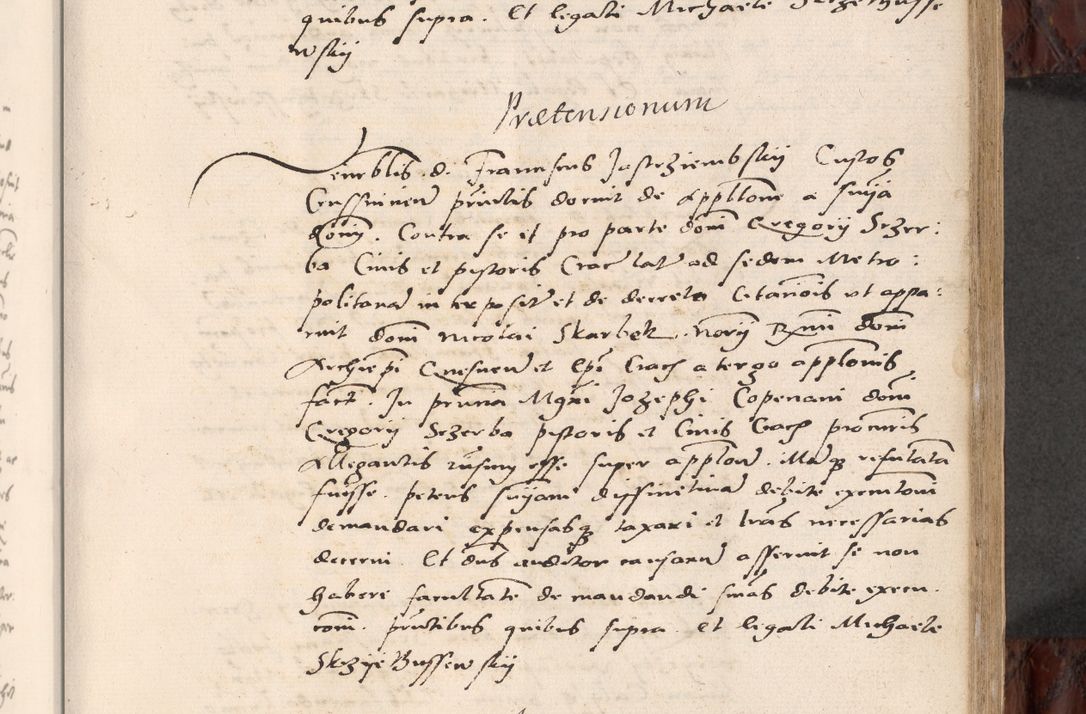 quibus supra. Et legali Michaele
wskij
Prætensionum
Venerblis. d. Franciscus Jastrziembskij Custos
Crussivicen prntis docuit de applloni a snia
domij. Contra se et pro parte domi Gregorij Sczer:
ba Civis et pistoris Crac lat ad sedem Metro:
politana interposit et de decreto Citationis ut appa:
ruit domi Nicolai Skarbek. Norij Rmi domi
Archiepi Gnesnen et Epi Crach a tergo appllonis
fact. In prntia Mgri Jozephi Copenani domi
Gregorij Sczerba pistoris et Civis Crach procuris
Allegantis rursum esse super appllon. Mqz refutata
fuisse. petens snijam diffinitiua debite executoni
demandari expensasqz taxari et lras necessarias
decerni. Et dns auditor causaru asseruit se non
habere facultate demandandi snias debite execu
tom. prntibus quibus supra. Et legali Michaele
Skrzije Bussewskij